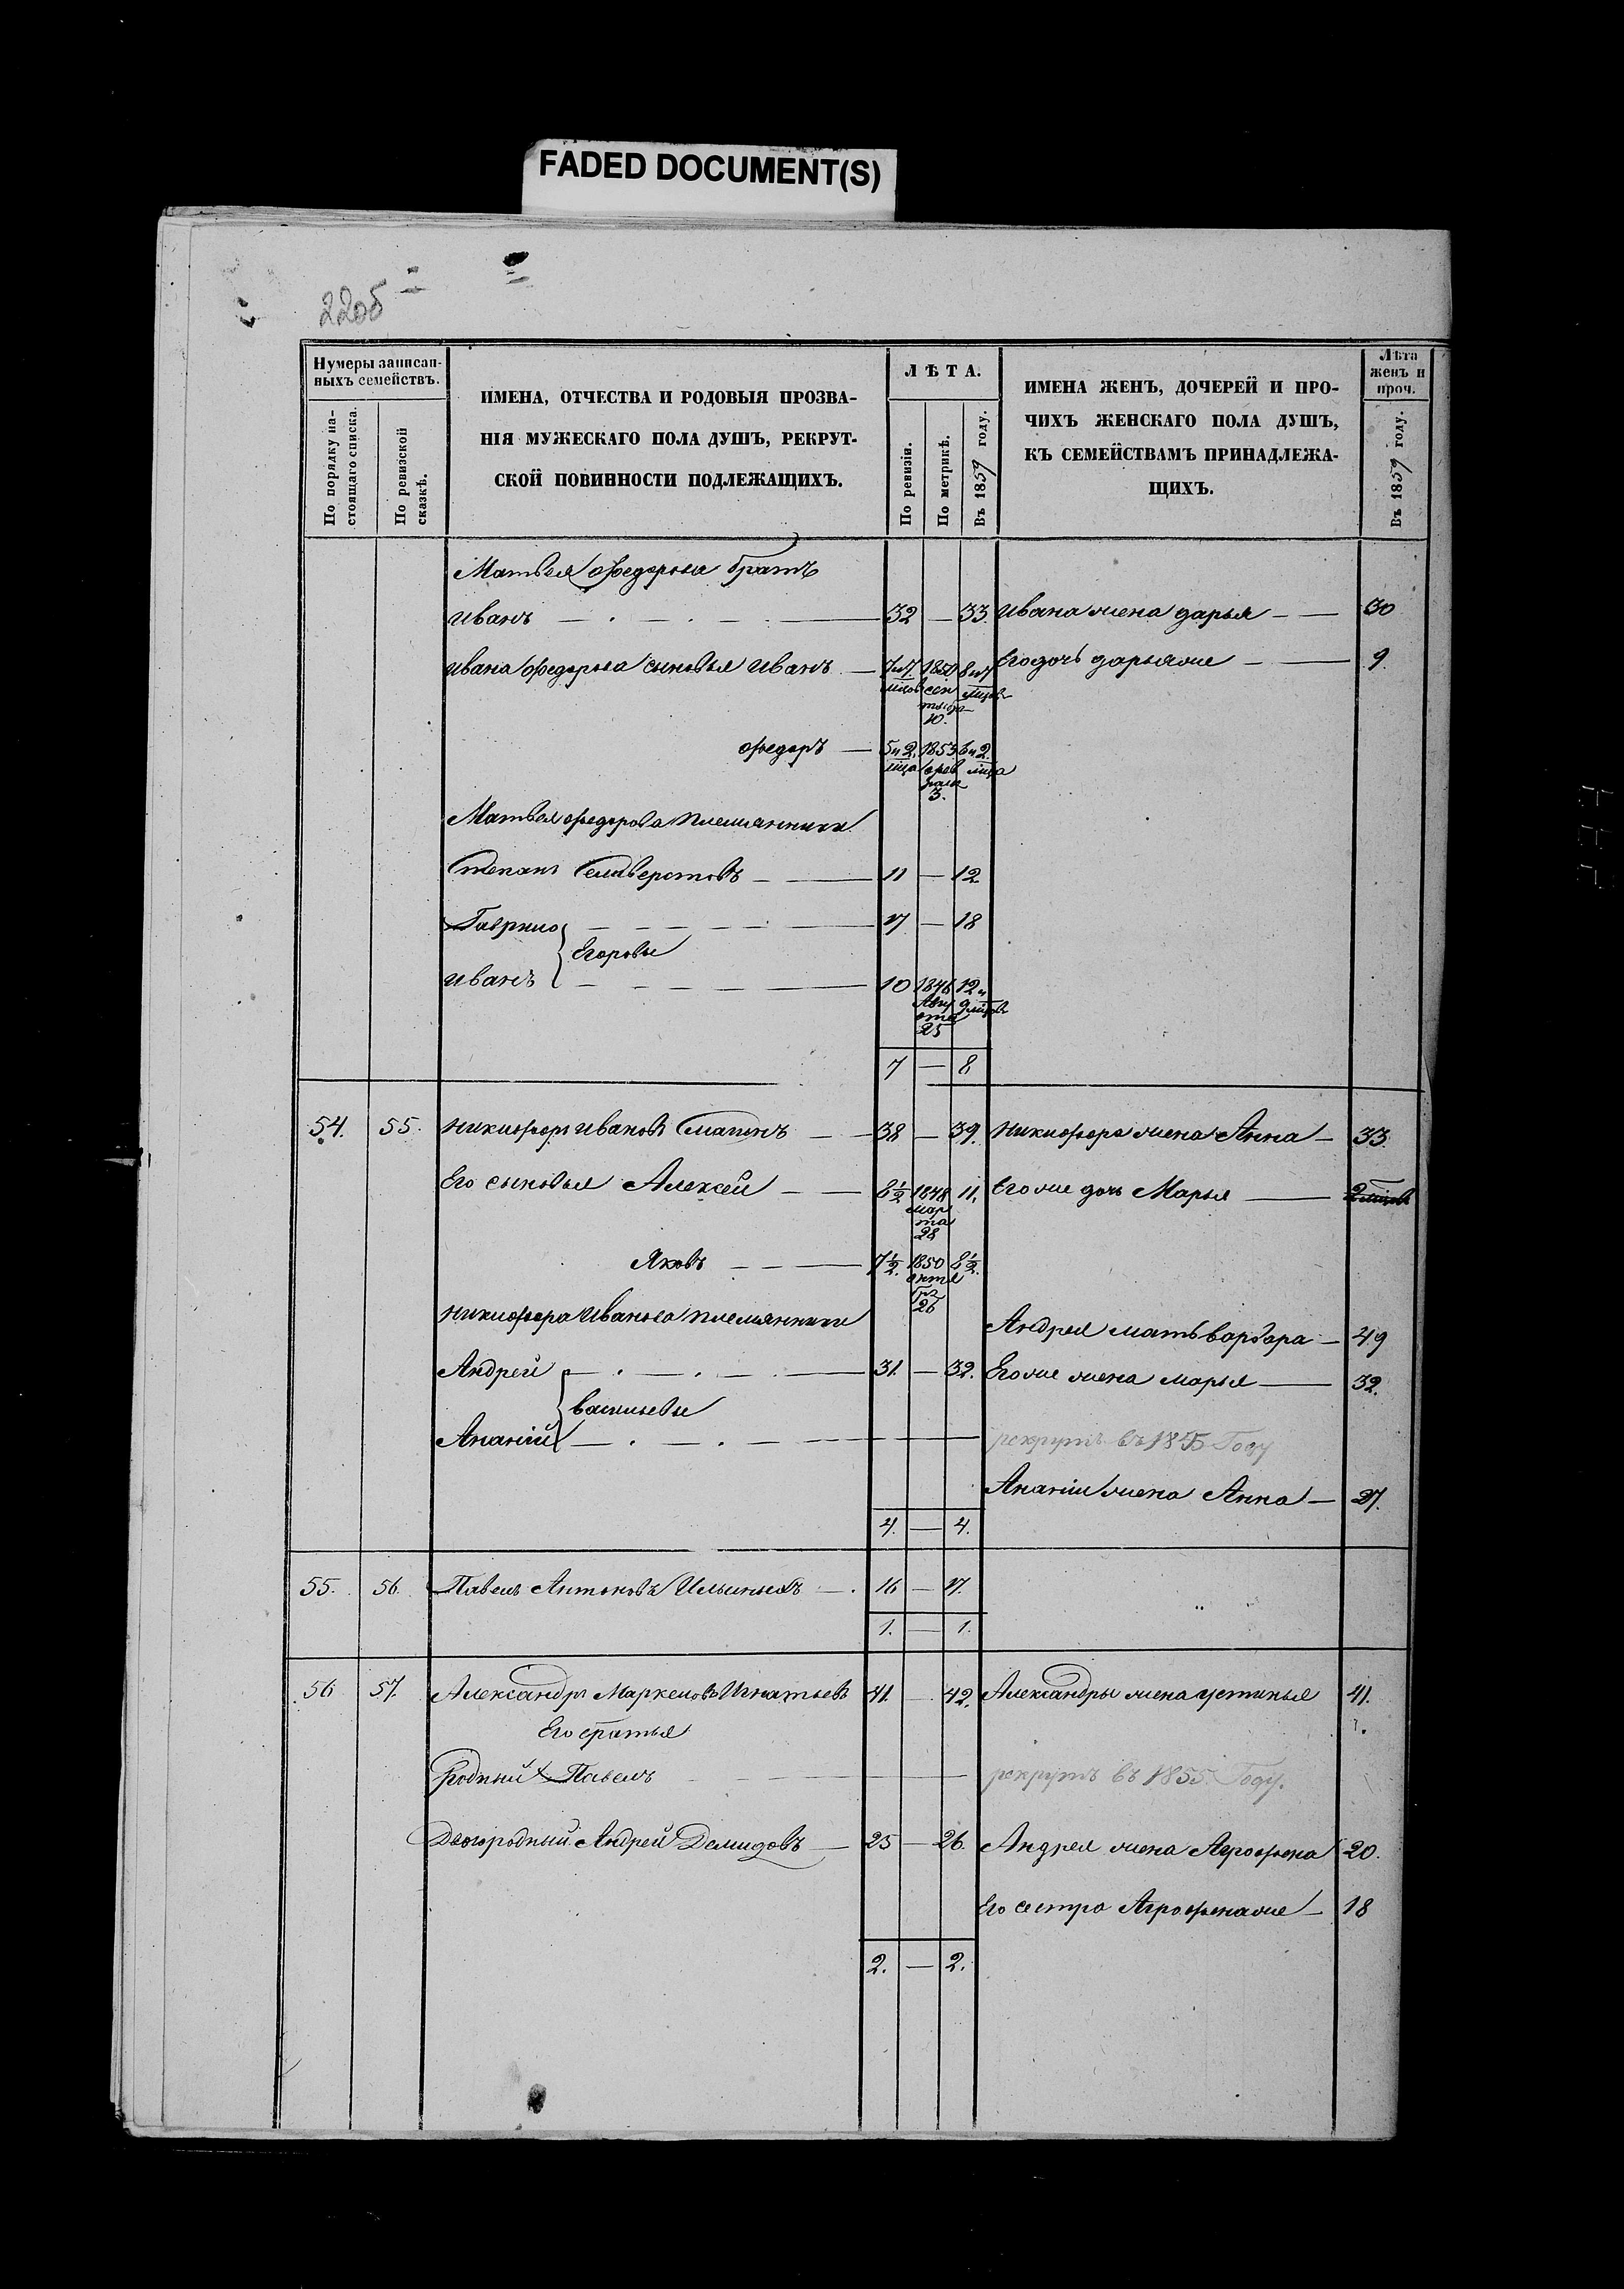 FADED DOCUMENT(S)
220б
Нумеры записан-
ныхъ семействъ.
По порядку на-
стоящаго списка.
По ревизской
сказкѣ.
ИМЕНА, ОТЧЕСТВА И РОДОВЫЯ ПРОЗВА-
НІЯ МУЖЕСКАГО ПОЛА ДУШЪ, РЕКРУТ-
СКОЙ ПОВИННОСТИ ПОДЛЕЖАЩИХЪ.
ЛѢТА.
По ревизіи.
По метрикѣ.
Въ 1859 году.
ИМЕНА ЖЕНЪ, ДОЧЕРЕЙ И ПРО-
ЧИХЪ ЖЕНСКАГО ПОЛА ДУШЪ,
КЪ СЕМЕЙСТВАМЪ ПРИНАДЛЕЖА-
ЩИХЪ.
Лѣта
женъ и
проч.
Въ 1859 году.
Матвея Федорова братъ
Иванъ 32 — 33. Ивана жена дарья — 30
Ивана Федорова сыновья Иванъ — 7 и 7 мцов 1850 сентября 10. 8 и 7 мцов Его дочь дарья же — 9.
Федоръ — 5 и 2 мца 1853 февраля 3. 6 и 2 мца
Матвея Федорова племянники
Степанъ Селиверстовъ — 11 — 12
Гаврило 17 — 18
Егоровы
Иванъ 10 1846 Августа 25 12 и 9 мцов
7 — 8
54. 55. Никифоръ Ивановъ — 38 — 39. Никифора жена Анна — 33.
Его сыновья Алексей — 8½ 1848 марта 28 11. Его же дочь Марья — 2 мцов
Яковъ — 7½. 1850 октя 26 8½.
Никифора Иванова племянники
Андрея мать варвара — 49
Андрей 31. — 32. Его же жена марья — 32.
васильевы
Ананій — рекрутъ въ 1855 Году
Ананіи жена Анна — 27.
4. — 4.
55. 56. Павелъ Антоновъ Ильиныхъ — 16 — 17.
1. — 1.
56 57. Александръ Маркеловъ Игнатьевъ 41. — 42. Александры жена устинья 41.
Его братья
Родный Павелъ — рекрутъ въ 1855 Году.
Двоюродный Андрей Демидовъ — 25 — 26. Андрея жена Агрофена 20.
Его сестра Агрофена же — 18
2. — 2.